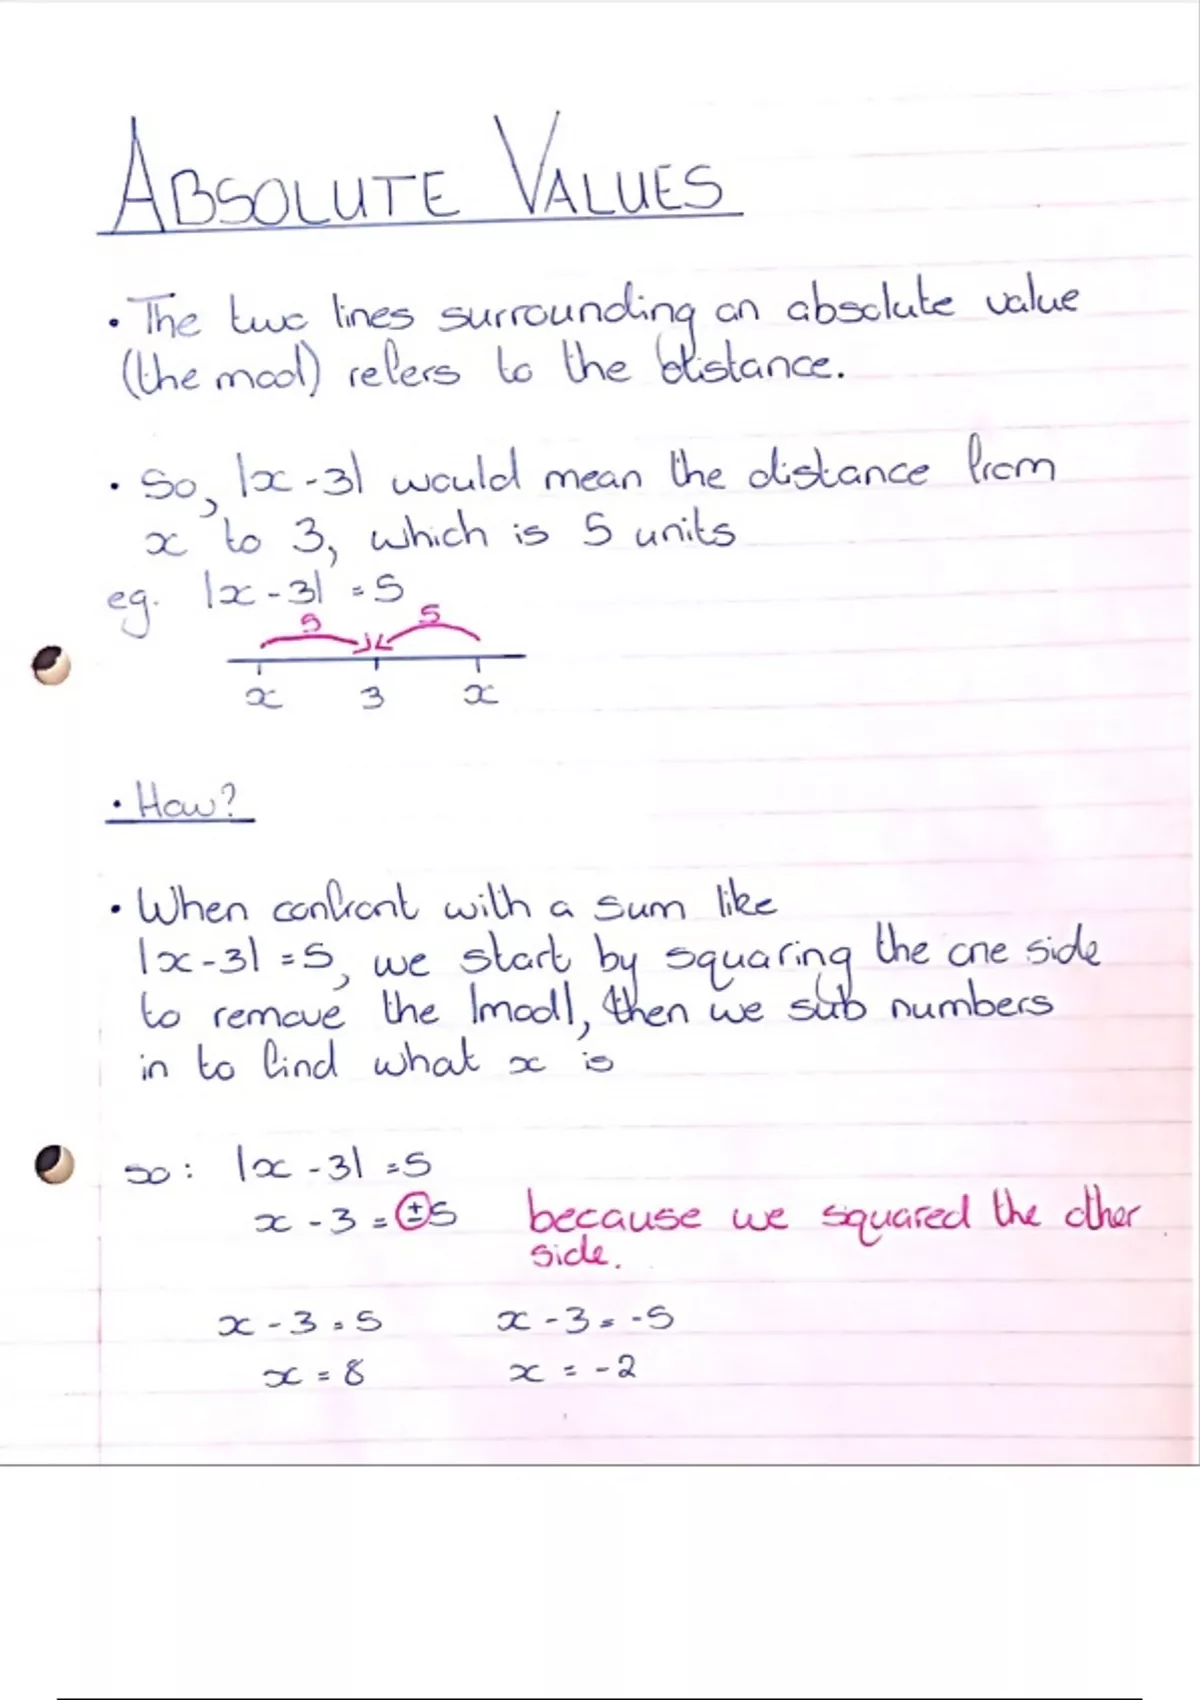 ABSOLUTE VALUES
• The two lines surrounding an absolute value
(the mod) refers to the distance.
• So, |x-3| would mean the distance from
x to 3, which is 5 units
eg. |x-3| = 5
5 5
x 3 x
• How?
• When confront with a sum like
|x-3| = 5, we start by squaring the one side
to remove the |mod|, then we sub numbers
in to find what x is
so: |x-3| = 5
x-3 = ±5 because we squared the other
side.
x-3 = 5 x-3 = -5
x = 8 x = -2